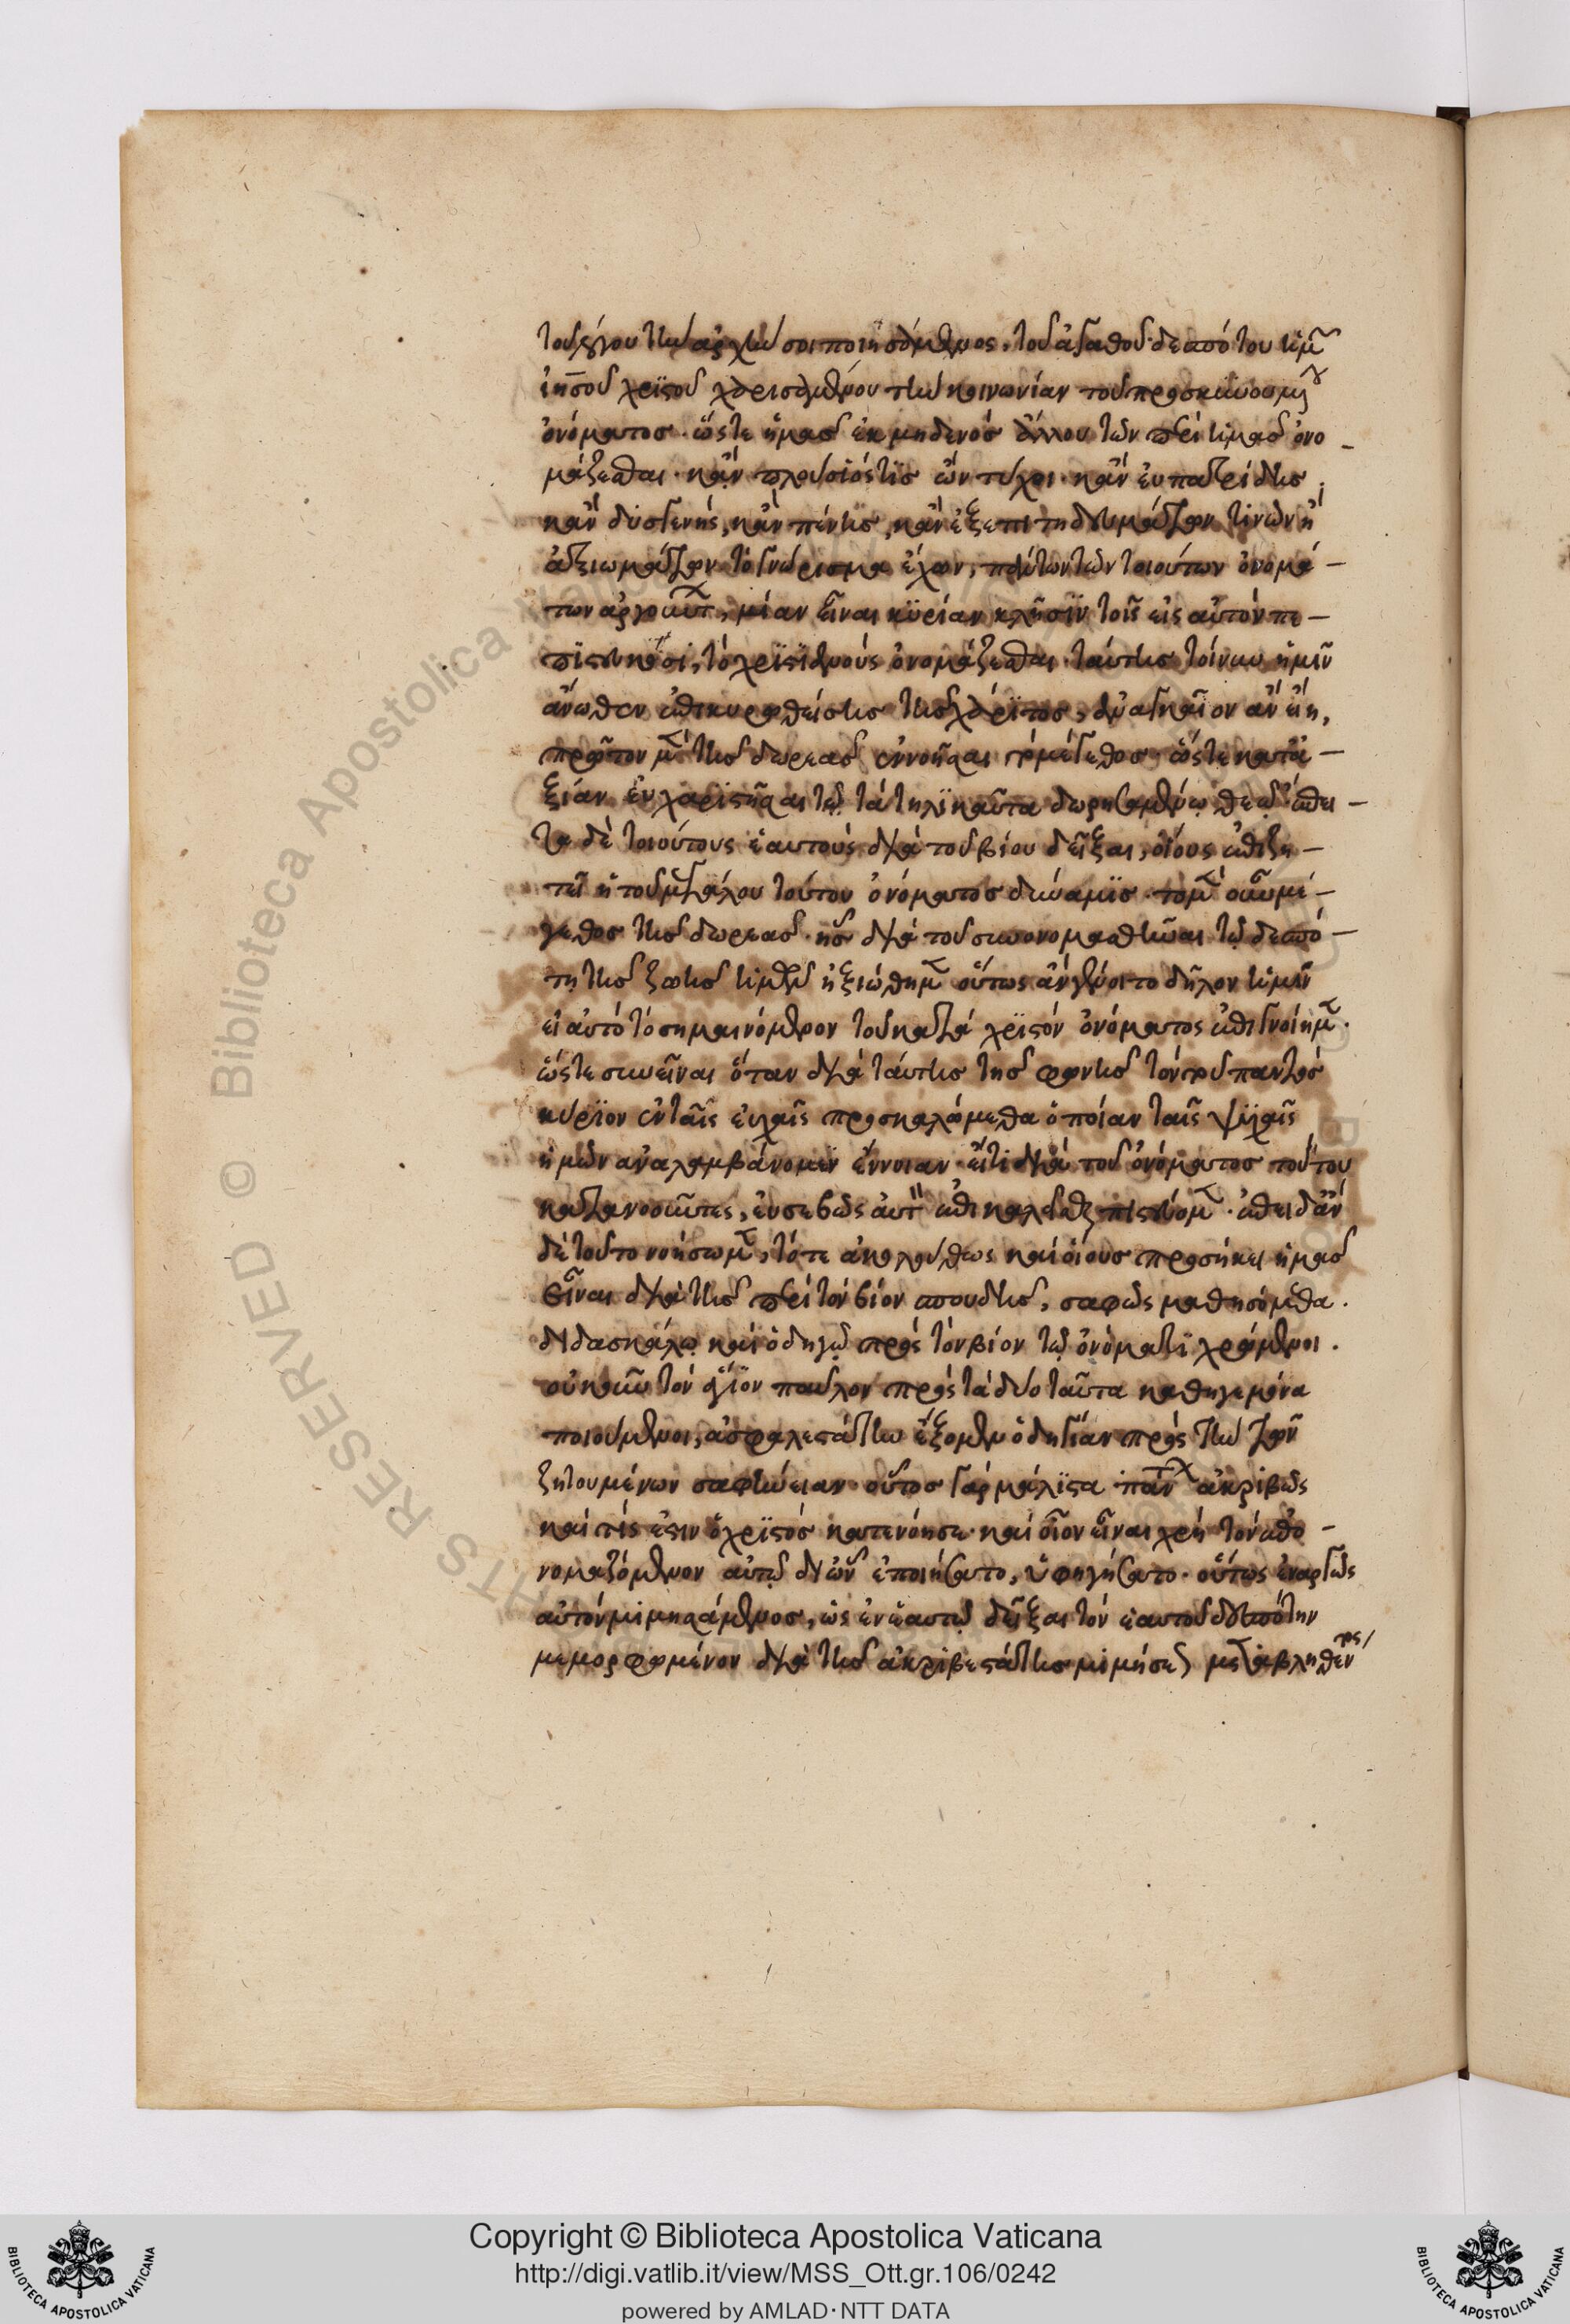 τοῦ λόγου τὴν ἀρχήν σοι ποιησάμενος. τοῦ ἀγαθοῦ δεσπότου ἡμῶν
ἰησοῦ χριστοῦ χαρισαμένου τὴν κοινωνίαν τοῦ προσκυνουμένου
ὀνόματος. ὥστε ἡμᾶς ἐκ μηδενὸς ἄλλου τῶν περὶ ἡμᾶς ὀνο-
μάζεσθαι. κἂν πλούσιός τις ὢν τύχοι. κἂν εὐπατρίδης.
κἂν δυσγενής, κἂν πένης, κἂν ἐξ ἐπιτηδευμάτων τινῶν ἢ
ἀξιωμάτων τὸ γνώρισμα ἔχων, πάντων τῶν τοιούτων ὀνομά-
των ἀργούντων, μίαν εἶναι κυρίαν κλῆσιν τοῖς εἰς αὐτὸν πε-
πιστευκόσι, τὸ χριστιανοὺς ὀνομάζεσθαι. ταύτης τοίνυν ἡμῖν
ἄνωθεν ἐπικυρωθείσης τῆς χάριτος, ἀναγκαῖον ἂν εἴη,
πρῶτον μὲν τῆς δωρεᾶς ἐννοῆσαι τὸ μέγεθος. ὥστε κατὰ-
ξίαν εὐχαριστῆσαι τῷ τὰ τηλικαῦτα δωρησαμένῳ θεῷ. ἔπει-
τα δὲ τοιούτους ἑαυτοὺς διὰ τοῦ βίου δεῖξαι, οἵους ἐπιζη-
τεῖ ἡ τοῦ μεγάλου τούτου ὀνόματος δύναμις. τὸ μὲν οὖν μέ-
γεθος τῆς δωρεᾶς. ἧς διὰ τοῦ συνονομασθῆναι τῷ δεσπό-
τῃ τῆς ζωῆς ἡμῶν ἠξιώθημεν οὕτως ἂν γένοιτο δῆλον ἡμῖν
εἰ αὐτὸ τὸ σημαινόμενον τοῦ κατὰ χριστὸν ὀνόματος ἐπιγνοίημεν.
ὥστε συνεῖναι ὅταν διὰ ταύτης τῆς φωνῆς τὸν τοῦ παντὸς
κύριον ἐν ταῖς εὐχαῖς προσκαλώμεθα ὁποίαν ταῖς ψυχαῖς
ἡμῶν ἀναλαμβάνομεν ἔννοιαν. ἢ τί διὰ τοῦ ὀνόματος τούτου
κατανοοῦντες, εὐσεβῶς αὐτὸν ἐπικαλεῖσθαι πιστεύομεν. ἐπειδὰν
δὲ τοῦτο νοήσωμεν, τότε ἀκολούθως καὶ οἵους προσήκει ἡμᾶς
εἶναι διὰ τῆς περὶ τὸν βίον σπουδῆς, σαφῶς μαθησόμεθα.
διδασκάλῳ καὶ ὁδηγῷ πρὸς τὸν βίον τῷ ὀνόματι χρώμενοι.
οὐκοῦν τὸν ἅγιον παῦλον πρὸς τὰ δύο ταῦτα καθηγεμόνα
ποιούμενοι, ἀσφαλεστάτην ἕξομεν ὁδηγίαν πρὸς τὴν τῶν
ζητουμένων σαφήνειαν. οὗτος γὰρ μάλιστα πάντων ἀκριβῶς
καὶ τίς ἐστιν ὁ χριστὸς κατενόησε. καὶ οἷον εἶναι χρὴ τὸν ἐπο-
νομαζόμενον αὐτῷ δι' ὧν ἐποιήσατο, ὑφηγήσατο. οὕτως ἐναργῶς
αὐτὸν μιμησάμενος, ὡς ἐν ἑαυτῷ δεῖξαι τὸν ἑαυτοῦ δεσπότην
μεμορφωμένον διὰ τῆς ἀκριβεστάτης μιμήσεως μεταβληθέντος
Copyright © Biblioteca Apostolica Vaticana
http://digi.vatlib.it/view/MSS_Ott.gr.106/0242
powered by AMLAD·NTT DATA